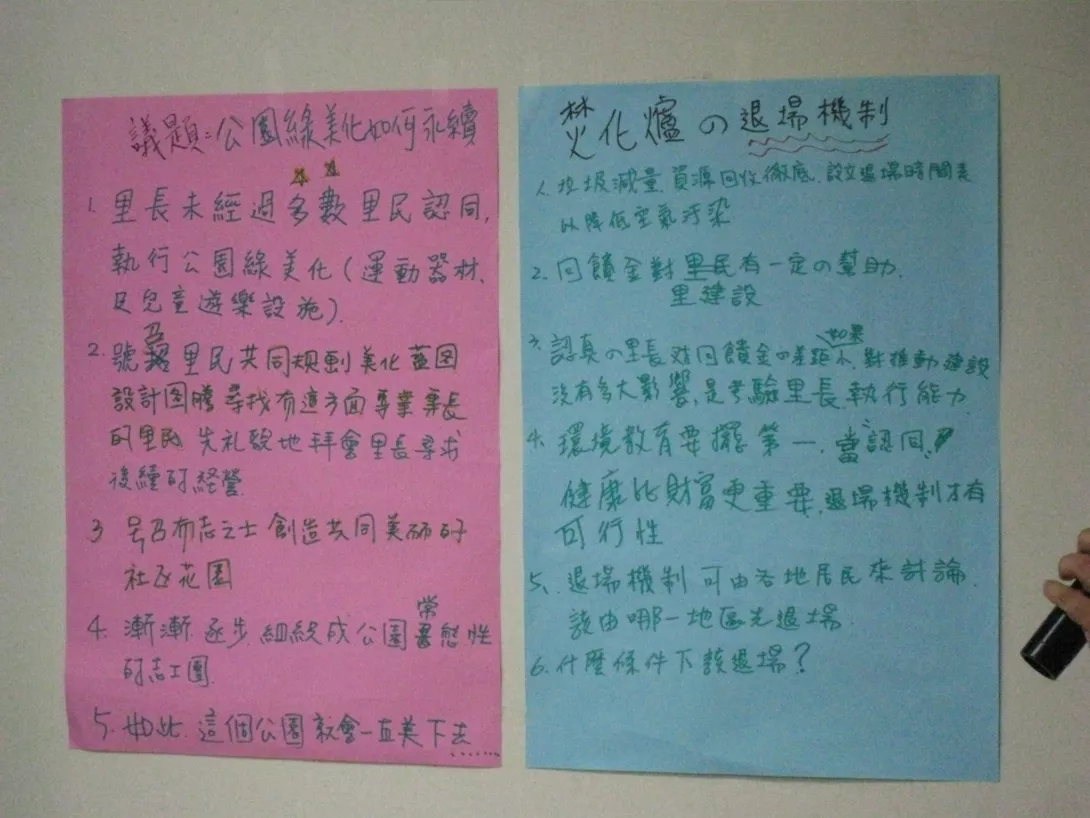 議題:公園綠美化如何永續
1. 里長未經過多數里民認同,
執行公園綠美化(運動器材、
及兒童遊樂設施).
2. 號召里民共同規劃美化藍圖
設計图騰尋找有這方面專業專長
的里民 先礼貌地拜會里長尋求
後續的経營
3 号召有志之士創造共同美丽的
社区花園
4. 漸漸.逐步.組織成公園常態性
的志工團.
5. 如此.這個公園就會一直美下去......
焚化爐の退場機制
1. 垃圾減量.資源回收徹底.設立退場時間表
以降低空氣汙染
2. 回饋金對里民有一定の幫助.
里建設
3. 認真の里長對回饋金の差距如果不 對推動建設
沒有多大影響,是考驗里長執行能力
4. 環境教育要擺第一.當認同
健康比財富更重要.退場機制才有
可行性
5. 退場機制可由各地居民來討論.
該由哪一地區先退場.
6. 什麼條件下該退場?